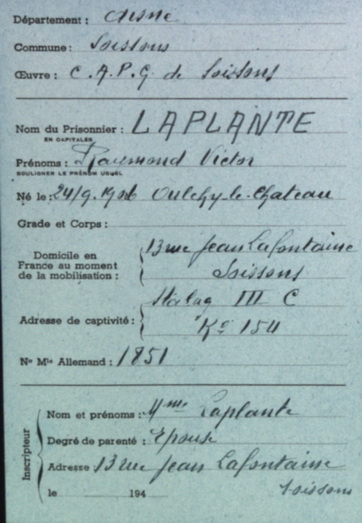 Département : Aisne
Commune : Soissons
Œuvre : C.A.P.G. de Soissons
Nom du Prisonnier : LAPLANTE
EN CAPITALES
Prénoms : Raymond Victor
SOULIGNER LE PRÉNOM USUEL
Né le : 24/9.1906 Oulchy-le-Chateau
Grade et Corps :
Domicile en France au moment de la mobilisation : 13 rue Jean Lafontaine
Soissons
Adresse de captivité : Stalag III C
Ko 154
No Mle Allemand : 1851
Inscripteur
Nom et prénoms : Mme Laplante
Degré de parenté : Epouse
Adresse 13 rue Jean Lafontaine
le 194 Soissons